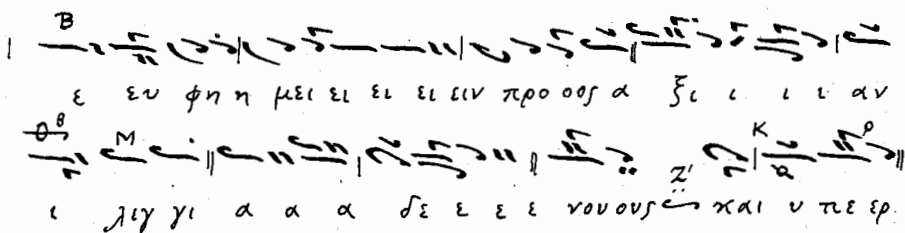 ε ευ φη η μει ει ει ει ειν προ οος α ξι ι ι ι αν
ι λιγ γι α α α δε ε ε ε νου ους και υ πε ερ